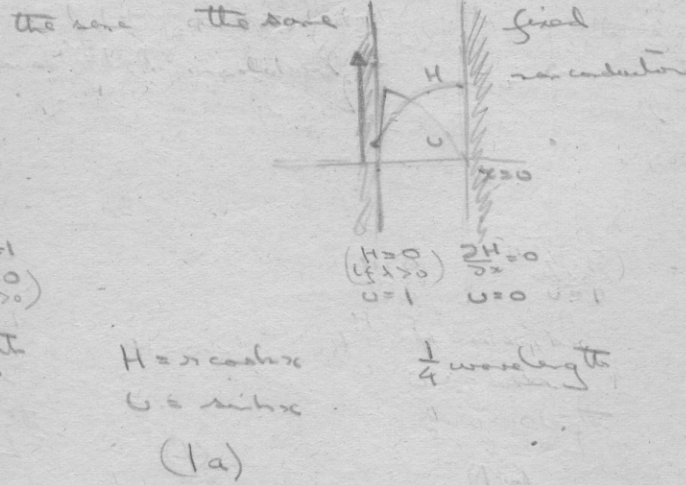 the same the same fixed
non conductor
H
U
x=0
(H=0 ∂H/∂x=0
if λ>0)
U=1 U=0 U=1
H = cosh x 1/4 wavelength
U = sinh x
(1a)